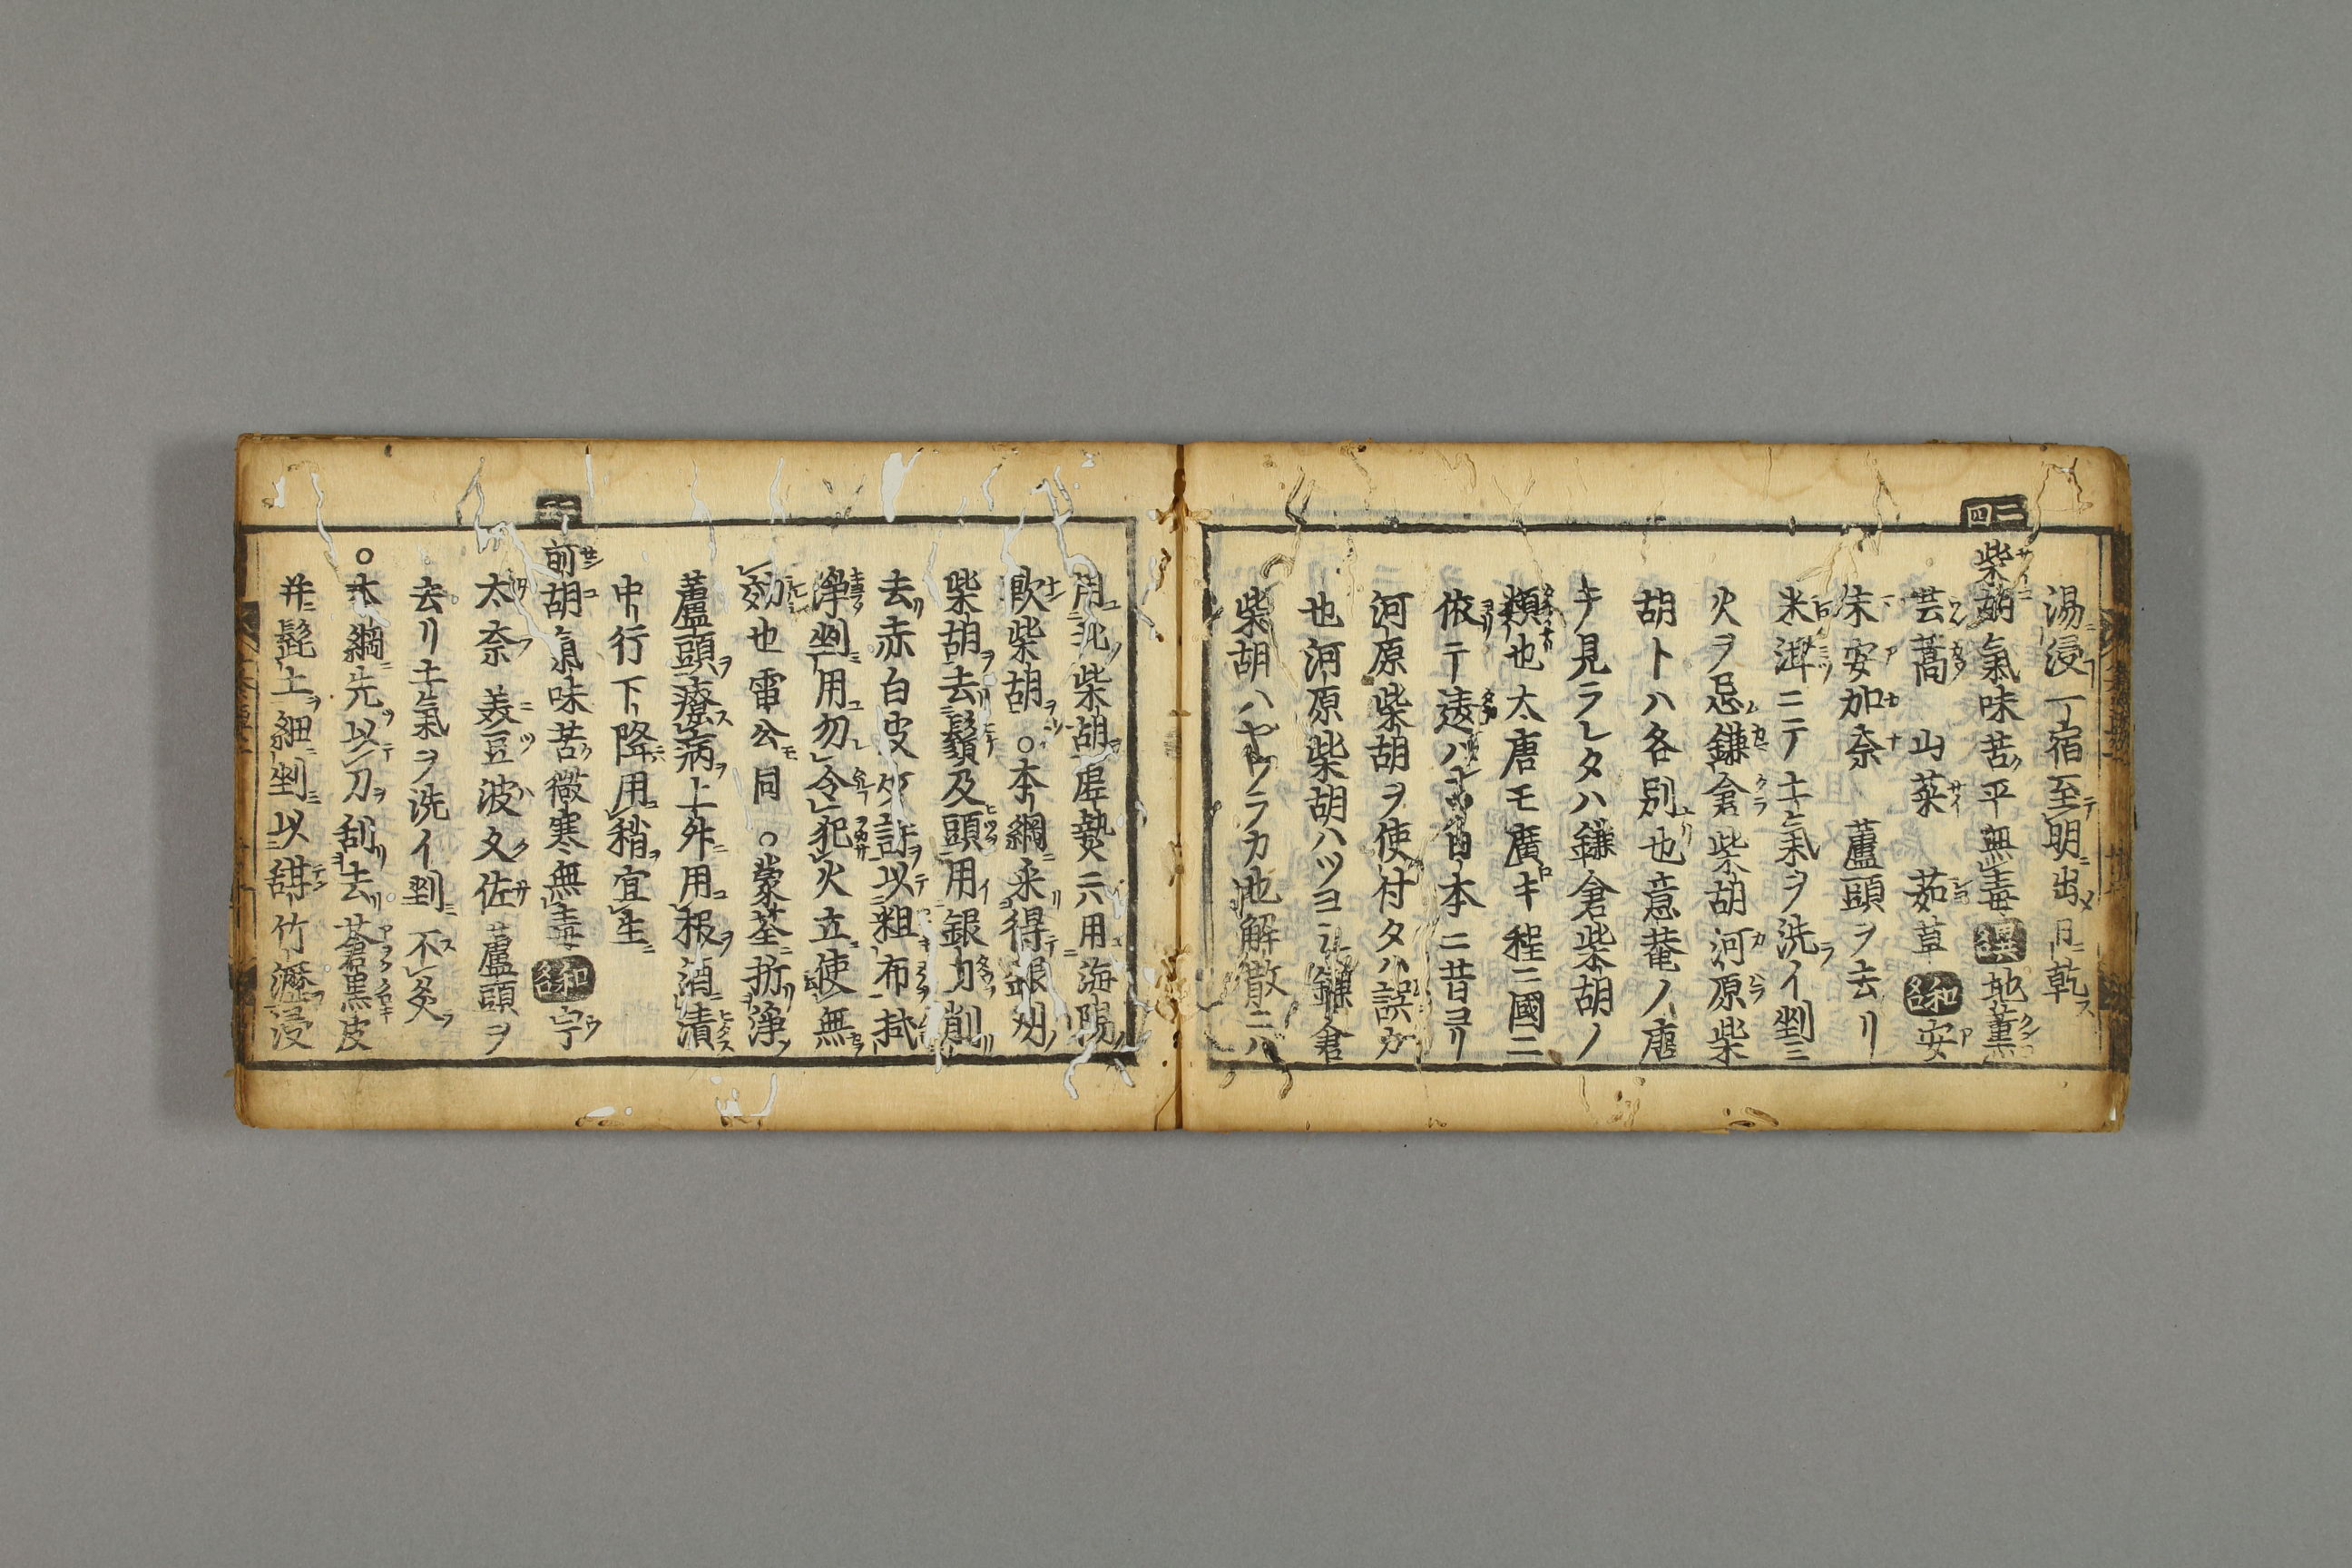 湯浸一宿至明出日乾
柴胡氣味苦平無毒 地薫
芸蒿 山菜 茹草 和名 安
末安加奈 蘆頭ヲ去リ
米泔ニテ土氣ヲ洗イ剉ミ
火ヲ忌鎌倉柴胡河原柴
胡トハ各別也意菴ノ唐
キ見ラレタハ鎌倉柴胡ノ
類也太唐モ廣キ程ニ國ニ
依テ違ハ日本ニ昔ヨリ
河原柴胡ヲ使付タハ誤カ
也河原柴胡ハツヨシ鎌倉
柴胡ハヤワラカ也解散ニハ
用北柴胡虚熱ニ用海陽
軟柴胡 ○本綱采得銀州
柴胡去鬚及頭用銀刀削
去赤白皮少許以粗布拭
淨剉用勿令犯火立使無
効也雷公同 ○蒙筌折淨
蘆頭療病上升用根酒漬
中行下降用稍宜生
前胡氣味苦微寒無毒 和名 宇
太奈 美豆波久佐 蘆頭ヲ
去リ土氣ヲ洗イ剉ミ不炙
○本綱先以刀刮去蒼黒皮
并髭土細剉以甜竹瀝浸